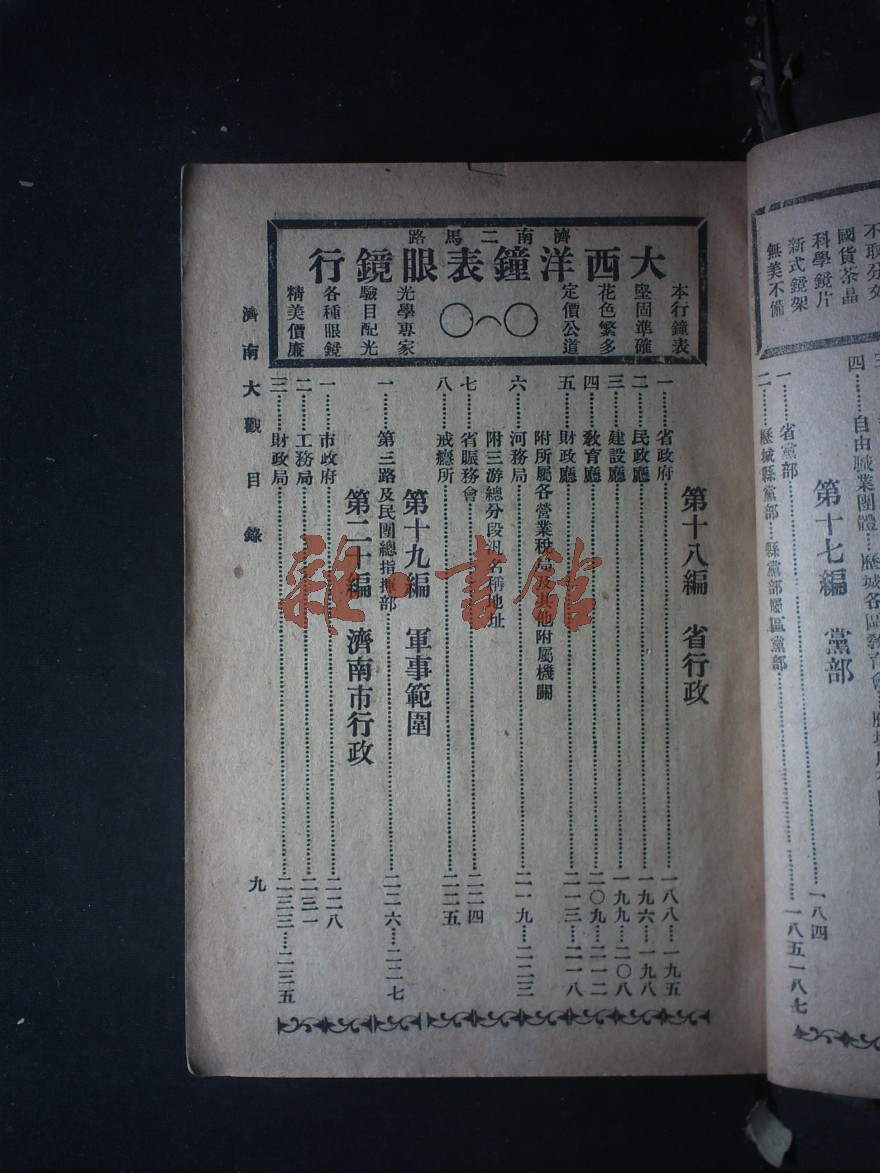 濟南二馬路
大西洋鐘表眼鏡行
本行鐘表
堅固準確
花色繁多
定價公道
一〇〇
光學專家
驗目配光
各種眼鏡
精美價廉
第十八編 省行政
一……省政府……一八八……一九五
二……民政廳……一九六……一九八
三……建設廳……一九九……二〇八
四……教育廳……二〇九……二一二
五……財政廳……二一三……二一八
附所屬各營業稅局及其他附屬機關
六……河務局……二一九……二二三
附三游總分段汛名稱地址
七……省賑務會……二二四
八……戒癮所……二二五
第十九編 軍事範圍
一……第三路及民團總指揮部……二二六……二二七
第二十編 濟南市行政
一……市政府……二二八
二……工務局……二三一
三……財政局……二三三……二三五
濟南大觀 目錄
九
國貨茶晶
科學鏡片
新式鏡架
無美不備
四……自由職業團體
一八四
第十七編 黨部
一……省黨部……一八五
二……歷城縣黨部
一八七
雜·書館